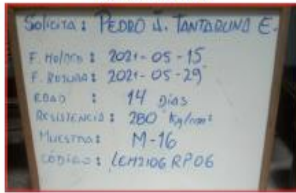 Solicita: PEDRO J. TANTARUNA E.
F. Moldeo: 2021-05-15
F. ROTURA: 2021-05-29
EDAD : 14 Dias
RESISTENCIA: 280 Kg/cm²
MUESTRA: M-16
CÓDIGO: LEM2106RP06